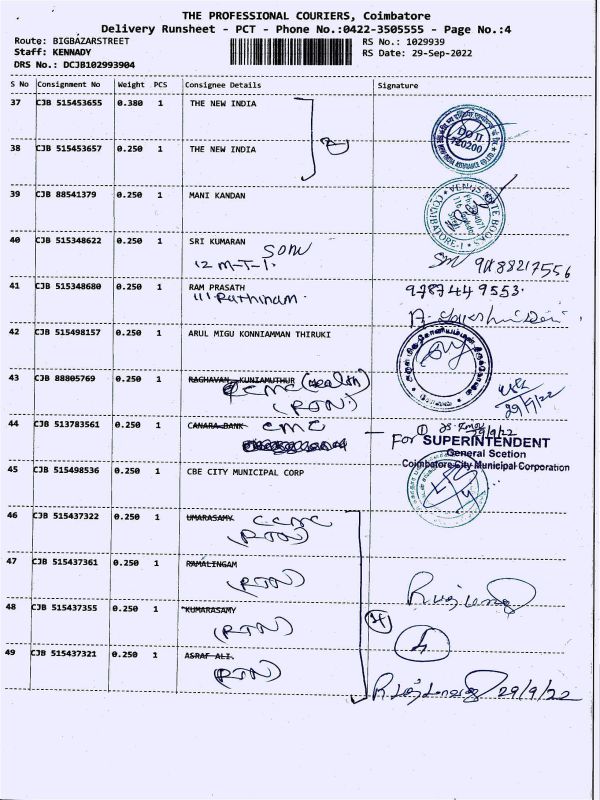 THE PROFESSIONAL COURIERS, Coimbatore
Delivery Runsheet - PCT - Phone No.:0422-3505555 - Page No.:4
Route: BIGBAZARSTREET
RS No.: 1029939
Staff: KENNADY
RS Date: 29-Sep-2022
DRS No.: DCJB102993904
S No Consignment No Weight PCS Consignee Details Signature
37 CJB 515453655 0.380 1 THE NEW INDIA
38 CJB 515453657 0.250 1 THE NEW INDIA
DO II
720200
39 CJB 88541379 0.250 1 MANI KANDAN
COIMBATORE-1
40 CJB 515348622 0.250 1 SRI KUMARAN
12 M-T-1.
41 CJB 515348680 0.250 1 RAM PRASATH 9787449553
111 Rathinam
42 CJB 515498157 0.250 1 ARUL MIGU KONNIAMMAN THIRUKI
43 CJB 88805769 0.250 1 RAGHAVAN KUNIAMUTHUR (Health)
(RTN)
29/9/22
44 CJB 513783561 0.250 1 CANARA BANK
For SUPERINTENDENT
General Scetion
Coimbatore City Municipal Corporation
45 CJB 515498536 0.250 1 CBE CITY MUNICIPAL CORP
46 CJB 515437322 0.250 1 UMARASAMY CCMC
(RTN)
47 CJB 515437361 0.250 1 RAMALINGAM
(RTN)
48 CJB 515437355 0.250 1 KUMARASAMY
(RTN)
49 CJB 515437321 0.250 1 ASRAF ALI.
(RTN)
29/9/22